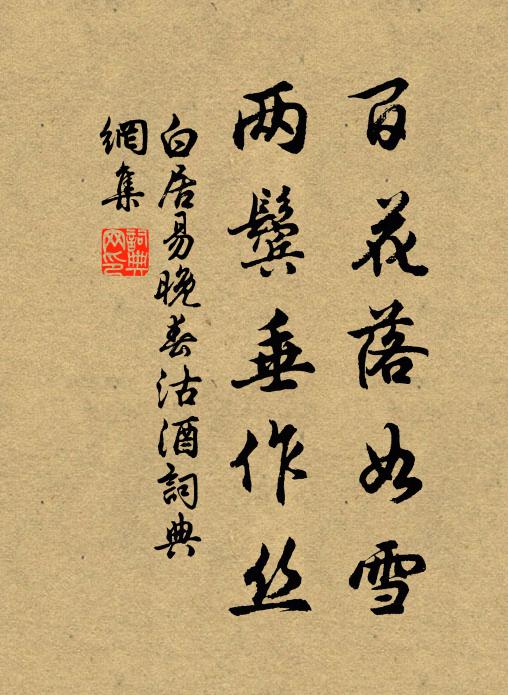 百花落如雪
两鬓垂作丝
白居易晚春沽酒詞典
網集
詞典
网印